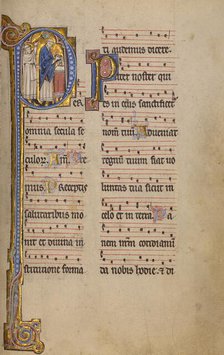 es.
omnia secula se
culor. Am. Pre
mus. Preceptis
salutaribus mo
niti et diuina in
stitutione forma
ti audemus dicere.
Pater noster qui
es in celis sanctificet
nomen tuum. Adueniat
regnum tuum fiat uo
luntas tua sicut in
celo et in terra. Pa
nem nostrum cotidianum
da nobis hodie. et di